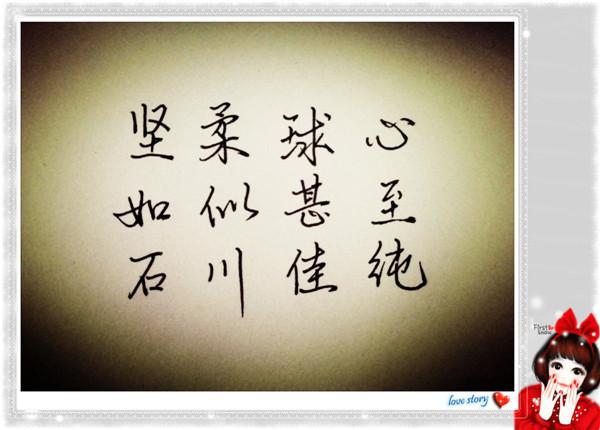 心至纯
球甚佳
柔似川
坚如石
First
snow
love story